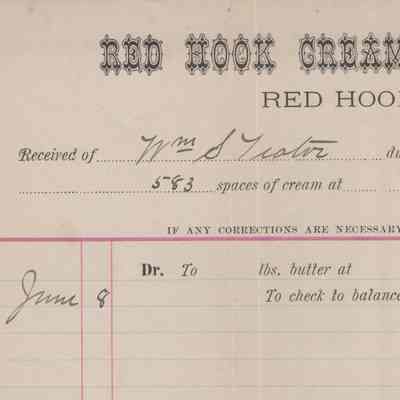 RED HOOK CREAM
RED HOO
Received of Wm S Teator du
583 spaces of cream at
IF ANY CORRECTIONS ARE NECESSARY
Dr. To lbs. butter at
June 8 To check to balance